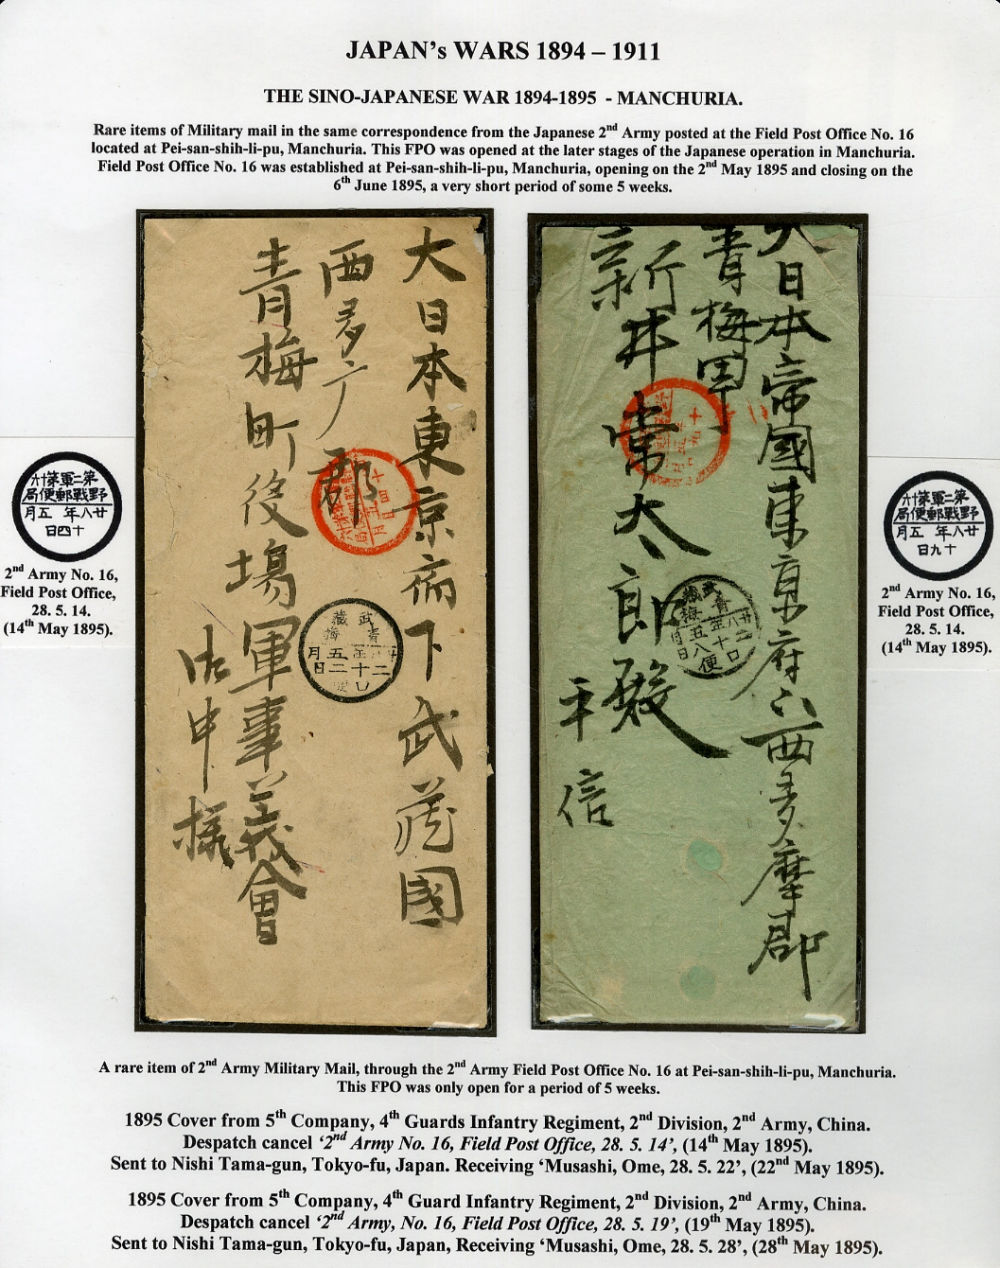 JAPAN's WARS 1894 – 1911
THE SINO-JAPANESE WAR 1894-1895 - MANCHURIA.
Rare items of Military mail in the same correspondence from the Japanese 2nd Army posted at the Field Post Office No. 16
located at Pei-san-shih-li-pu, Manchuria. This FPO was opened at the later stages of the Japanese operation in Manchuria.
Field Post Office No. 16 was established at Pei-san-shih-li-pu, Manchuria, opening on the 2nd May 1895 and closing on the
6th June 1895, a very short period of some 5 weeks.
大日本東京府下武蔵國
西多广郡
青梅町役場軍事義會
御中様
大日本帝國東京府下西多摩郡
青梅町
新井常太郎殿
平信
第二軍第十六
野戰郵便局
廿八年五月
十四日
2nd Army No. 16,
Field Post Office,
28. 5. 14.
(14th May 1895).
武藏
青梅
廿八年五月
二十二日
武藏
青梅
廿八年五月
二十八日
便
第二軍第十六
野戰郵便局
廿八年五月
十九日
2nd Army No. 16,
Field Post Office,
28. 5. 14.
(14th May 1895).
A rare item of 2nd Army Military Mail, through the 2nd Army Field Post Office No. 16 at Pei-san-shih-li-pu, Manchuria.
This FPO was only open for a period of 5 weeks.
1895 Cover from 5th Company, 4th Guards Infantry Regiment, 2nd Division, 2nd Army, China.
Despatch cancel ‘2nd Army No. 16, Field Post Office, 28. 5. 14’, (14th May 1895).
Sent to Nishi Tama-gun, Tokyo-fu, Japan. Receiving ‘Musashi, Ome, 28. 5. 22’, (22nd May 1895).
1895 Cover from 5th Company, 4th Guard Infantry Regiment, 2nd Division, 2nd Army, China.
Despatch cancel ‘2nd Army, No. 16, Field Post Office, 28. 5. 19’, (19th May 1895).
Sent to Nishi Tama-gun, Tokyo-fu, Japan, Receiving ‘Musashi, Ome, 28. 5. 28’, (28th May 1895).